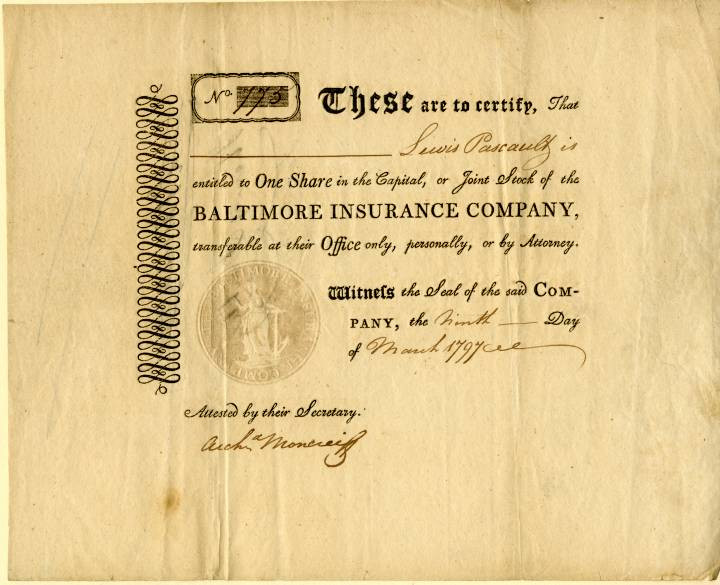 No. 775
These are to certify, That
Lewis Pascault is
entitled to One Share in the Capital, or Joint Stock of the
BALTIMORE INSURANCE COMPANY,
transferable at their Office only, personally, or by Attorney.
Witneſs the Seal of the said COM-
PANY, the Ninth Day
of March 1797
Attested by their Secretary.
Archd. Moncrieff